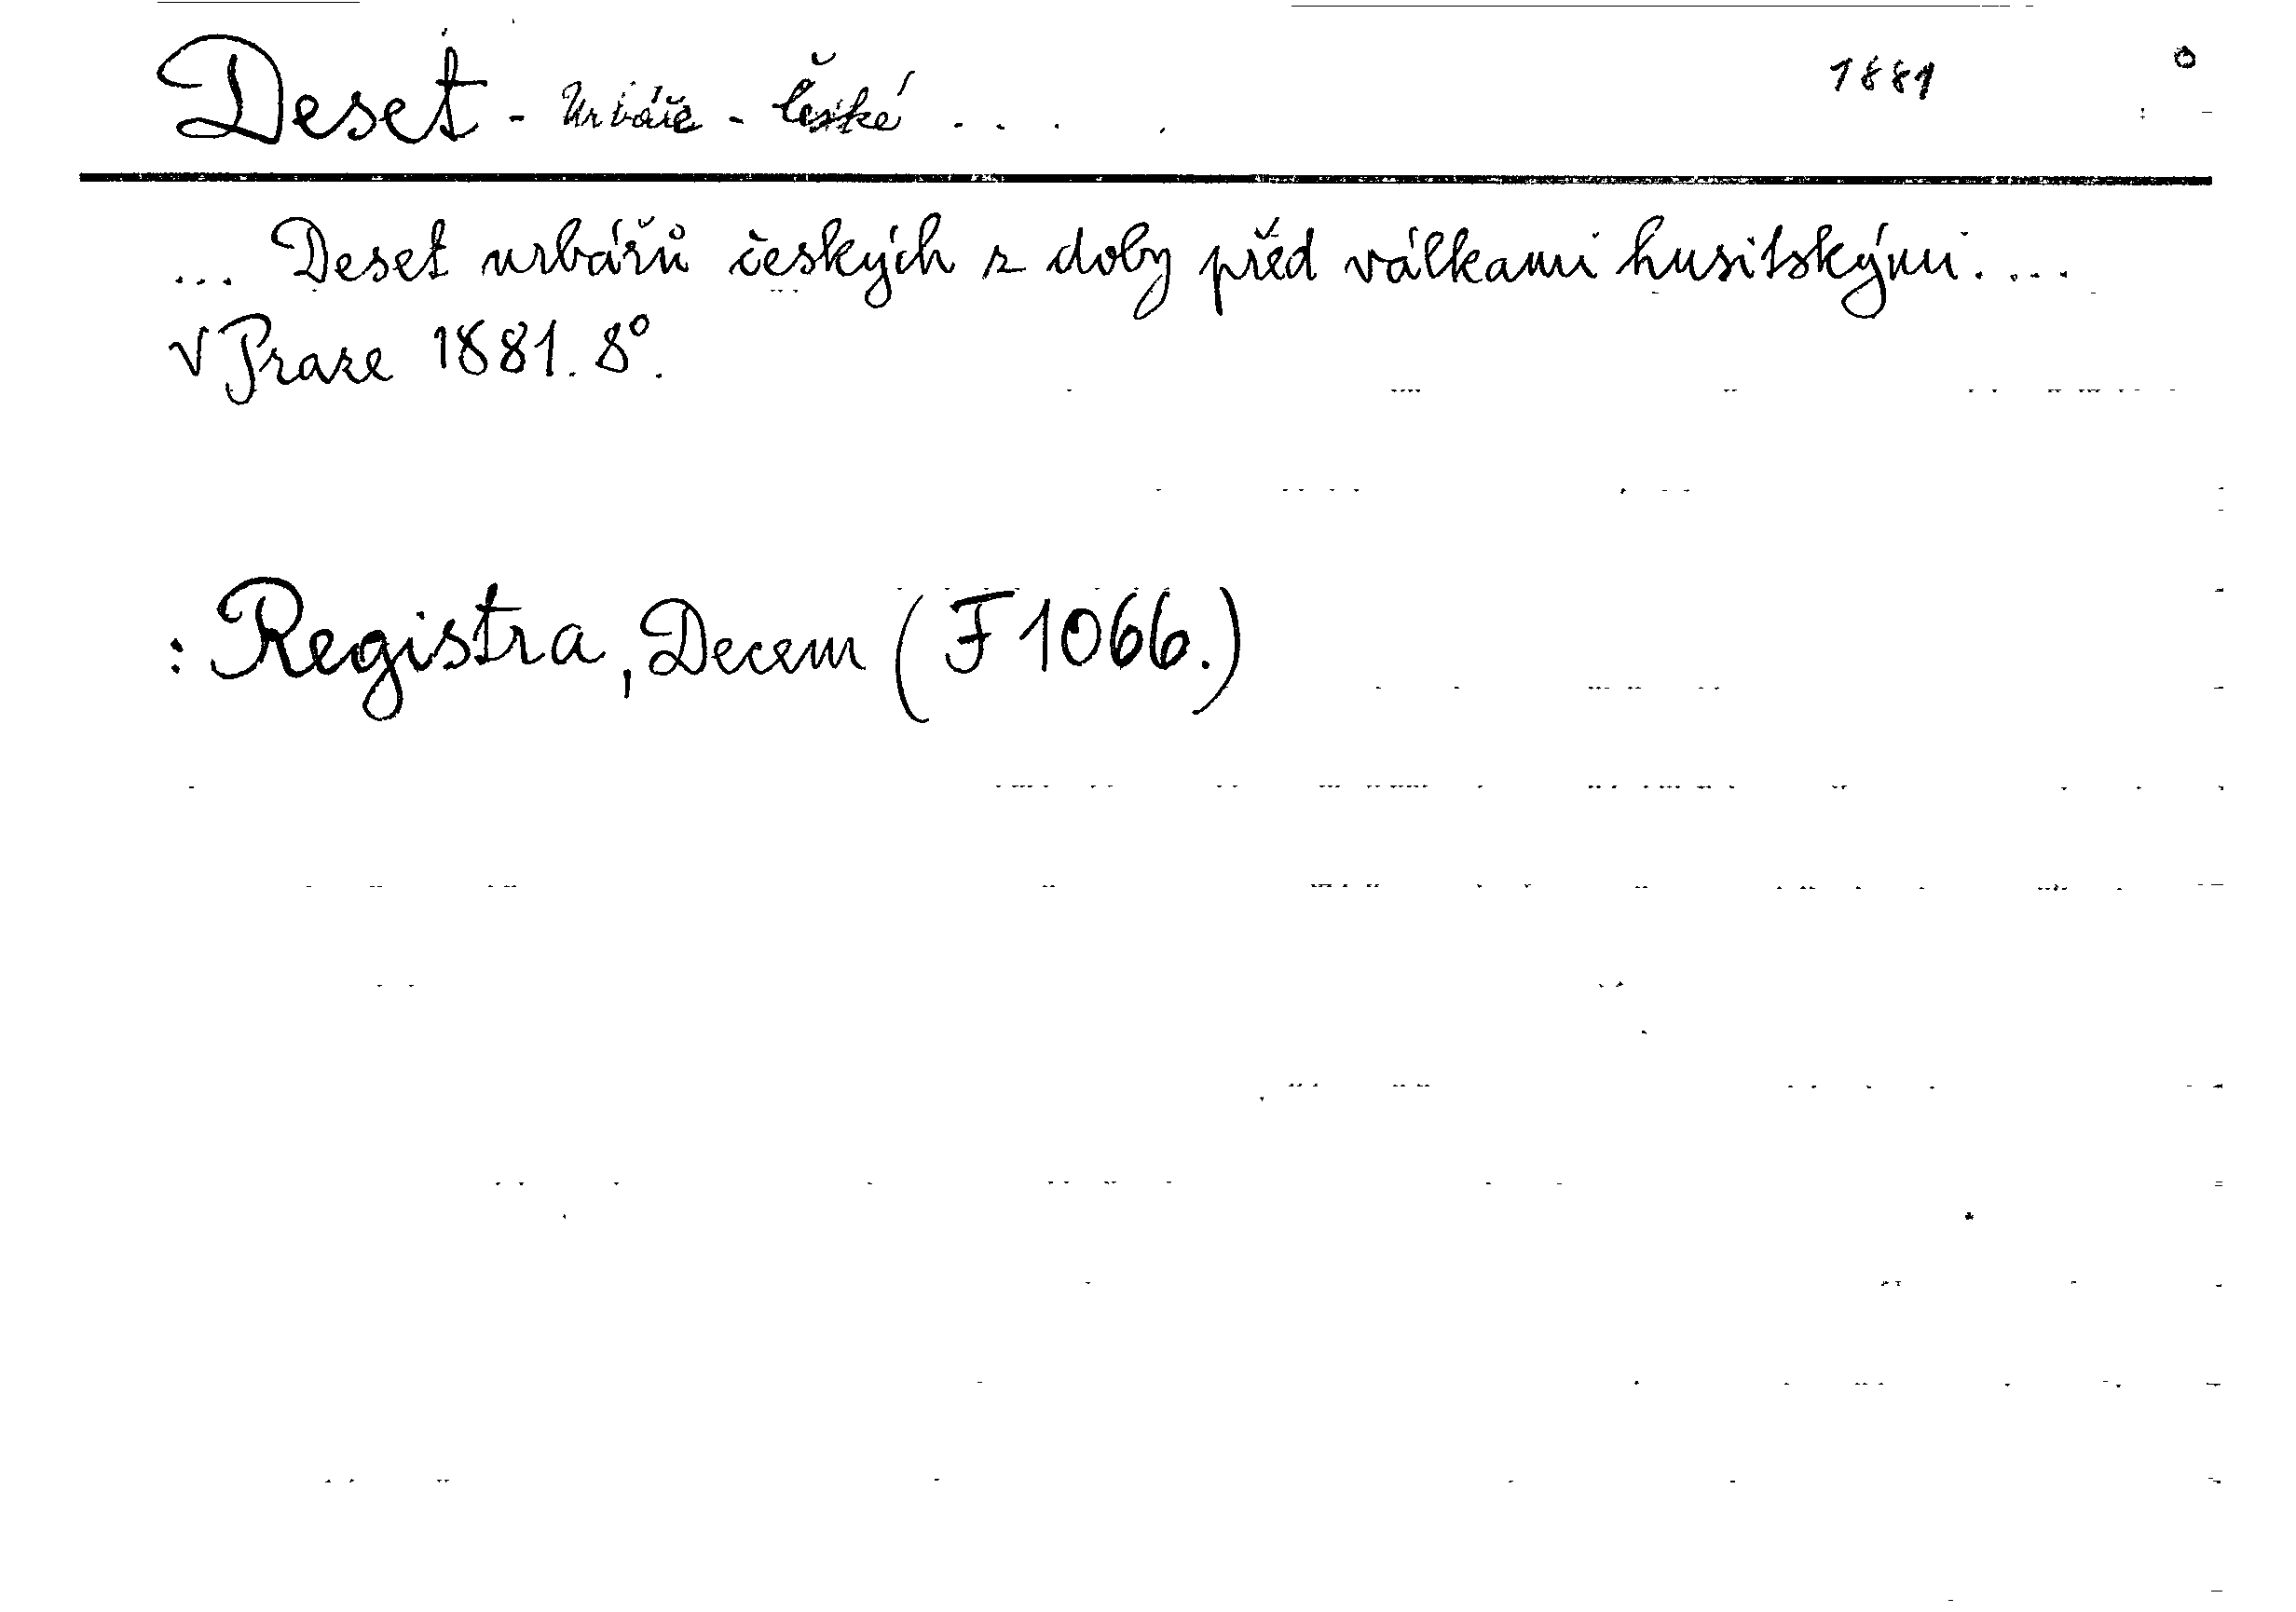 Deset - Urbáře - České . . . 1881 o
... Deset urbářů českých z doby před válkami husitskými. ...
V Praze 1881. 8°.
: Registra, Decem (F 1066.)